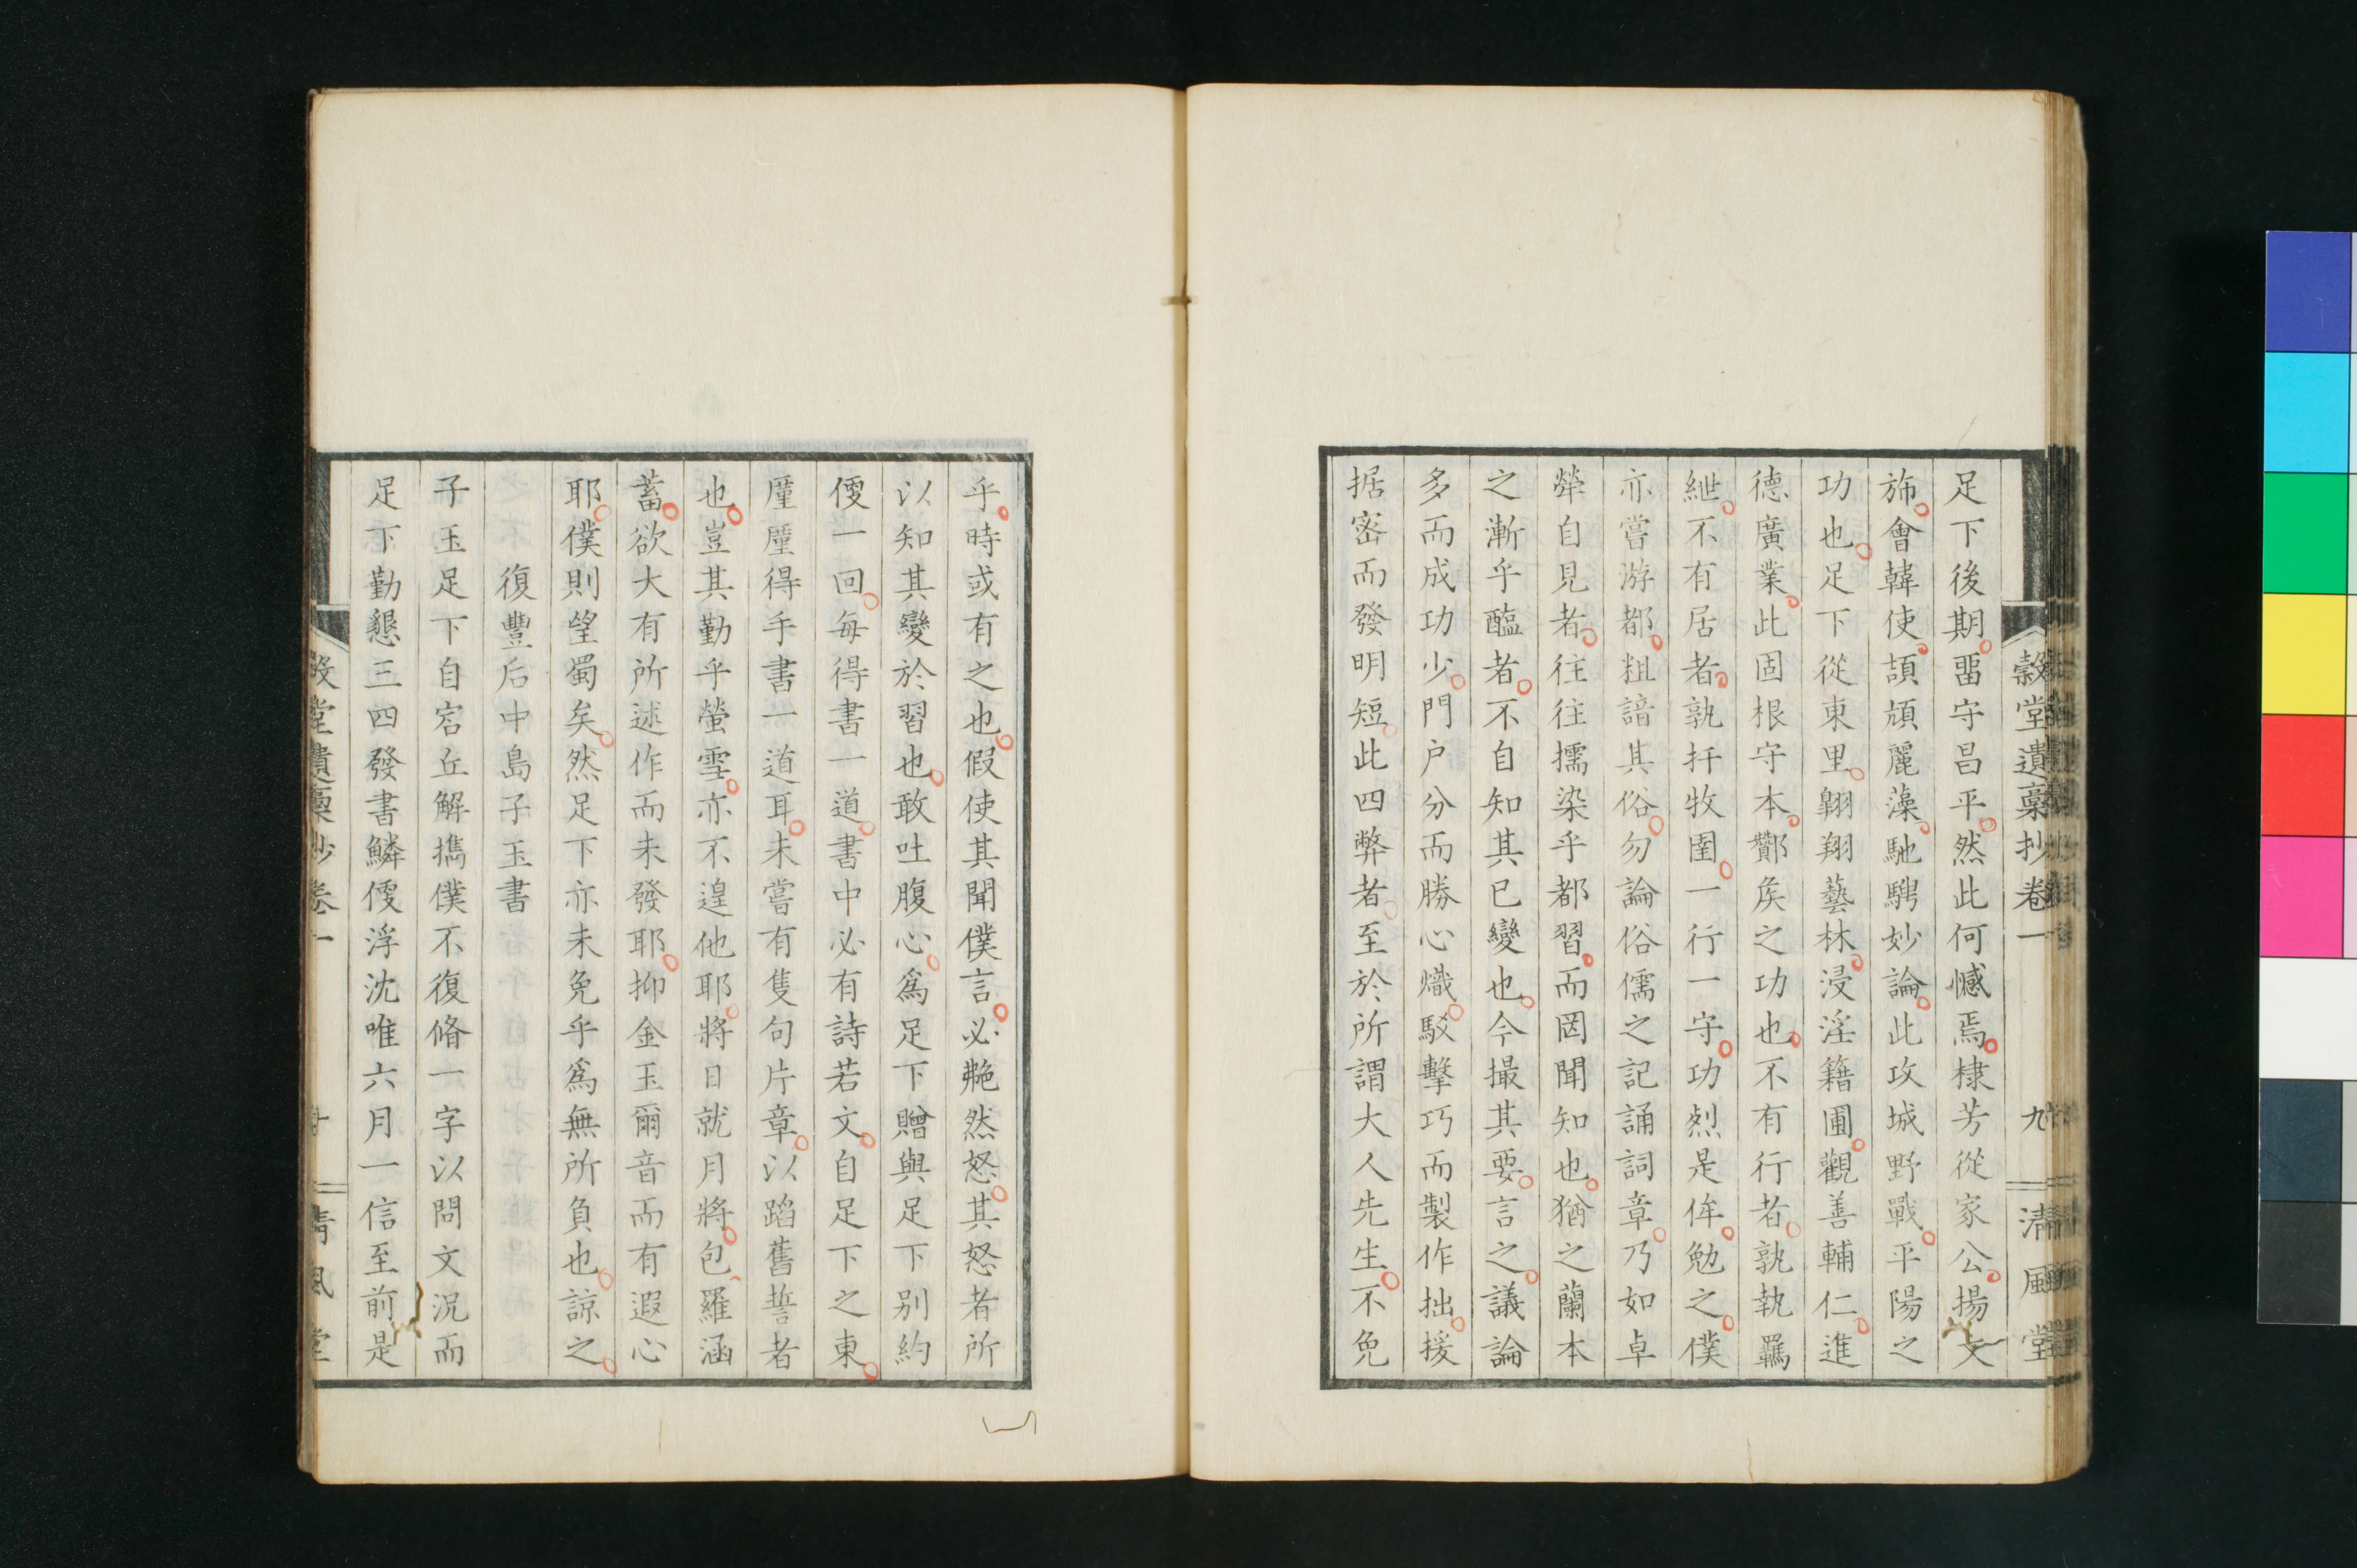 穀堂遺稾抄卷一　九　清風堂
足下後期畱守昌平然此何憾焉棣芳從家公揚文
斾會韓使頡頏麗藻馳騁妙論此攻城野戰平陽之
功也足下從東里翺翔藝林浸淫籍圃觀善輔仁進
德廣業此固根守本酇矦之功也不有行者孰執羈
紲不有居者孰扞牧圉一行一守功烈是侔勉之僕
亦嘗游都粗諳其俗勿論俗儒之記誦詞章乃如卓
犖自見者往往擩染乎都習而罔聞知也猶之蘭本
之漸乎醢者不自知其已變也今撮其要言之議論
多而成功少門户分而勝心熾駁擊巧而製作拙援
据密而發明短此四弊者至於所謂大人先生不免
乎時或有之也假使其聞僕言必艴然怒其怒者所
以知其變於習也敢吐腹心爲足下贈與足下别約
㑳一回每得書一道書中必有詩若文自足下之東
厪厪得手書一道耳未嘗有隻句片章以蹈舊誓者
也豈其勤乎螢雪亦不遑他耶將日就月將包羅涵
蓄欲大有所述作而未發耶抑金玉爾音而有遐心
耶僕則望蜀矣然足下亦未免乎爲無所負也諒之
復豐后中島子玉書
子玉足下自宕丘解攜僕不復脩一字以問文況而
足下勤懇三四發書鱗㑳浮沈唯六月一信至前是
穀堂遺稾抄卷一　十　清風堂